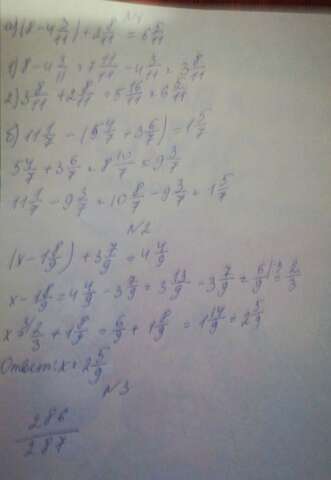 N1
а) (8 - 4 3/11) + 2 8/11 = 6 5/11
1) 8 - 4 3/11 = 7 11/11 - 4 3/11 = 3 8/11
2) 3 8/11 + 2 8/11 = 5 16/11 = 6 5/11
б) 11 1/7 - (5 4/7 + 3 6/7) = 1 5/7
5 4/7 + 3 6/7 = 8 10/7 = 9 3/7
11 1/7 - 9 3/7 = 10 8/7 - 9 3/7 = 1 5/7
N2
(x - 1 8/9) + 3 7/9 = 4 4/9
x - 1 8/9 = 4 4/9 - 3 7/9 = 3 13/9 - 3 7/9 = 6/9 = 2/3
x = 2/3 + 1 8/9 = 6/9 + 1 8/9 = 1 14/9 = 2 5/9
Ответ: x = 2 5/9
N3
286/287